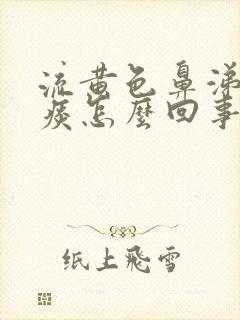 流黄色鼻涕
痰怎麽回事
纸上飛雪